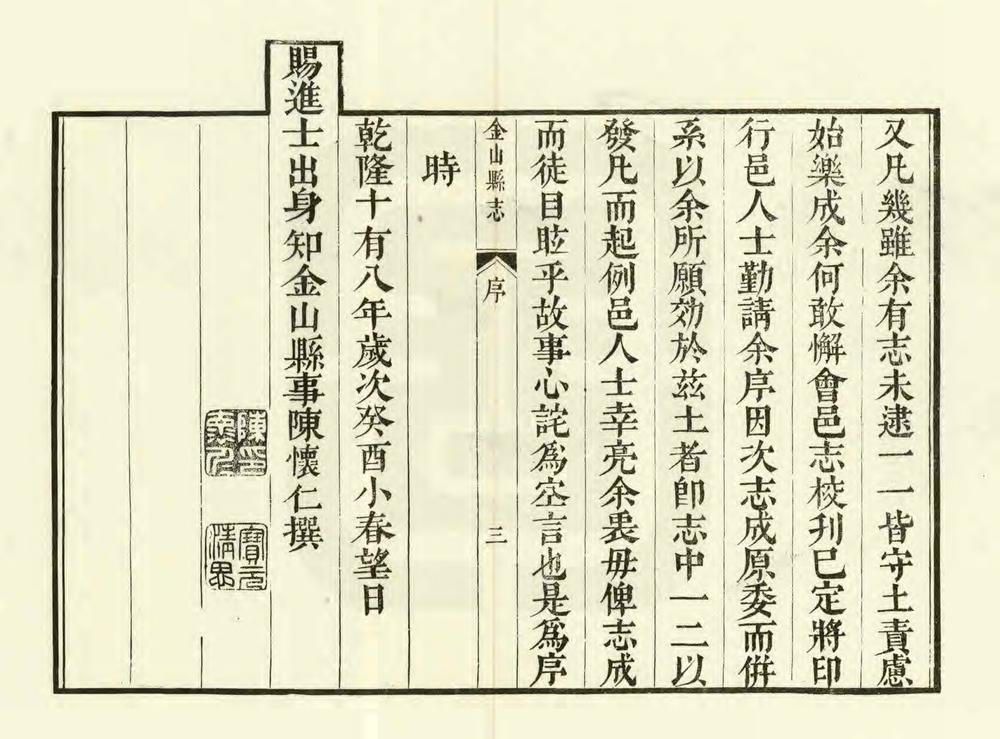 又凡幾雖余有志未逮一一皆守土責慮
始樂成余何敢懈會邑志校刋已定將印
行邑人士勤請余序因次志成原委而倂
系以余所願効於兹土者卽志中一二以
發凡而起例邑人士幸亮余衷毋俾志成
而徒目眩乎故事心詫爲空言也是爲序
金山縣志 序 三
時
乾隆十有八年歲次癸酉小春望日
賜進士出身知金山縣事陳懷仁撰